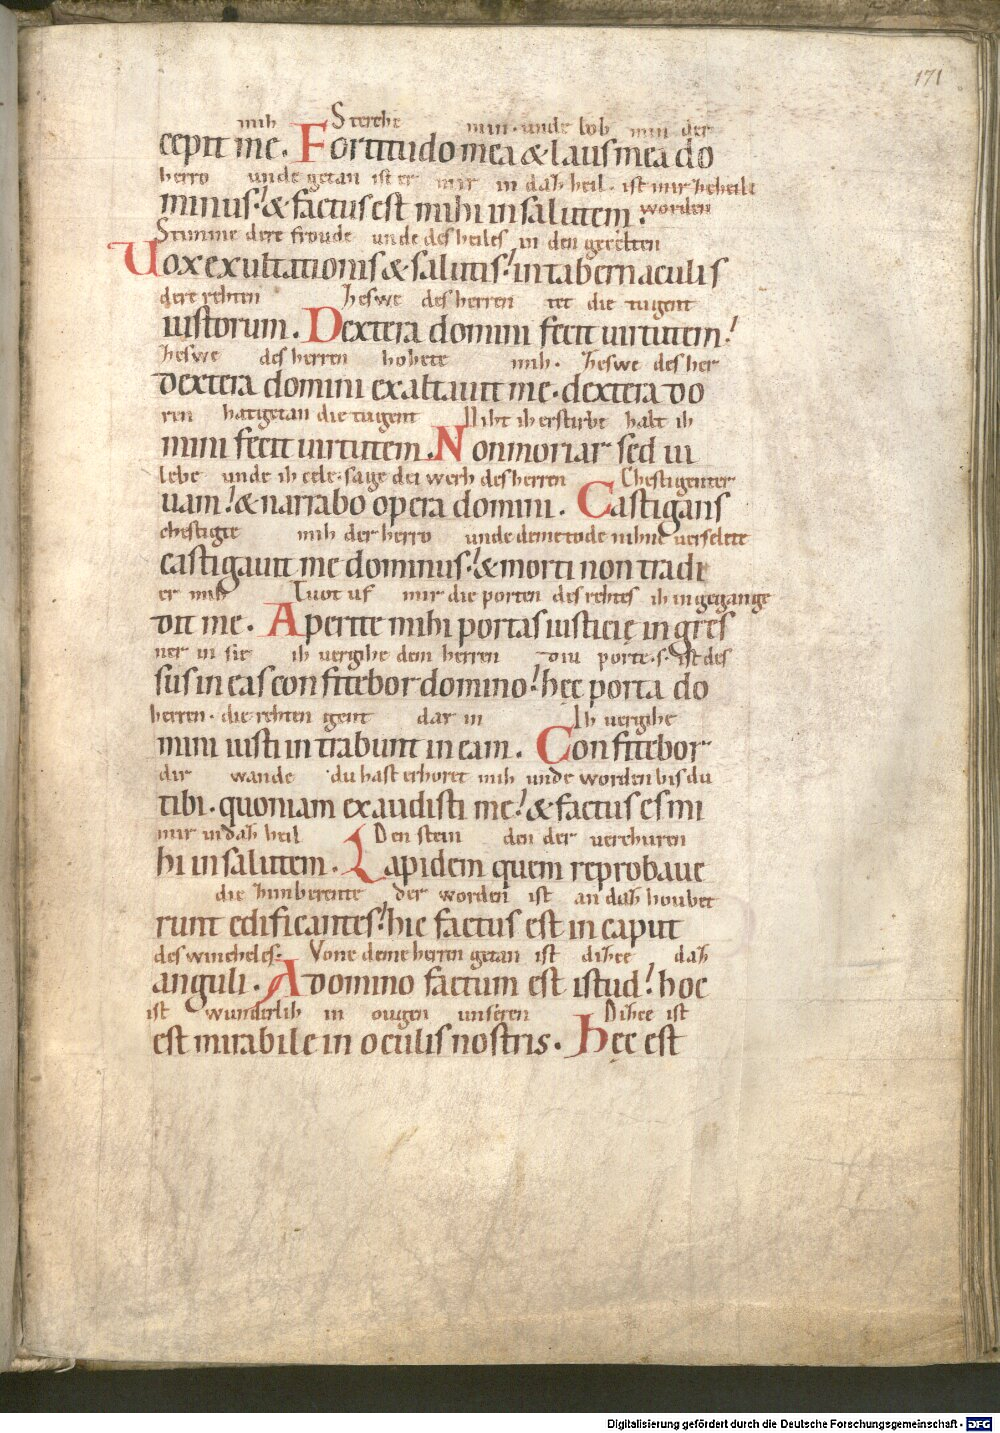 171
mih Sterche min · unde lob min der
cepit me. Fortitudo mea & laus mea do
herro unde getan ist er mir in daz heil · ist mir zeheile
minus: & factus est mihi in salutem. worden
Stimme dere froude unde des heiles in den gecelten
Vox exultationis & salutis: in tabernaculis
dere rehten zeswe des herren tet die tugent
iustorum. Dextera domini fecit uirtutem:
zeswe des herren hohete mih · zeswe des her
dextera domini exaltauit me · dextera do
ren hat getan die tugent Niht ih erstirbe halt ih
mini fecit uirtutem. Non moriar sed ui
lebe unde ih cele · sage dei werh des herren Chestigenter
uam: & narrabo opera domini. Castigans
chestigte mih der herro unde deme tode nihne verselete
castigauit me dominus: & morti non tradi
er mih Tuot uf mir die porten des rehtes ih ingegange
dit me. Aperite mihi portas iusticię ingres
ner in sie ih vergihe dem herren diu porte · s · ist des
sus in eas confitebor domino: hęc porta do
herren · die rehten gent dar in Ih vergihe
mini iusti intrabunt in eam. Confitebor
dir wande du hast erhoret mih unde worden bis du
tibi · quoniam exaudisti me: & factus es mi
mir in daz heil Den stein den der verchuren
hi in salutem. Lapidem quem reprobaue
die zimberente der worden ist an daz houbet
runt edificantes: hic factus est in caput
des wincheles. Vone deme herren getan ist dizce daz
anguli. A domino factum est istud: hoc
ist wunderlih in ougen unseren Dizce ist
est mirabile in oculis nostris. Hęc est
Digitalisierung gefördert durch die Deutsche Forschungsgemeinschaft - DFG